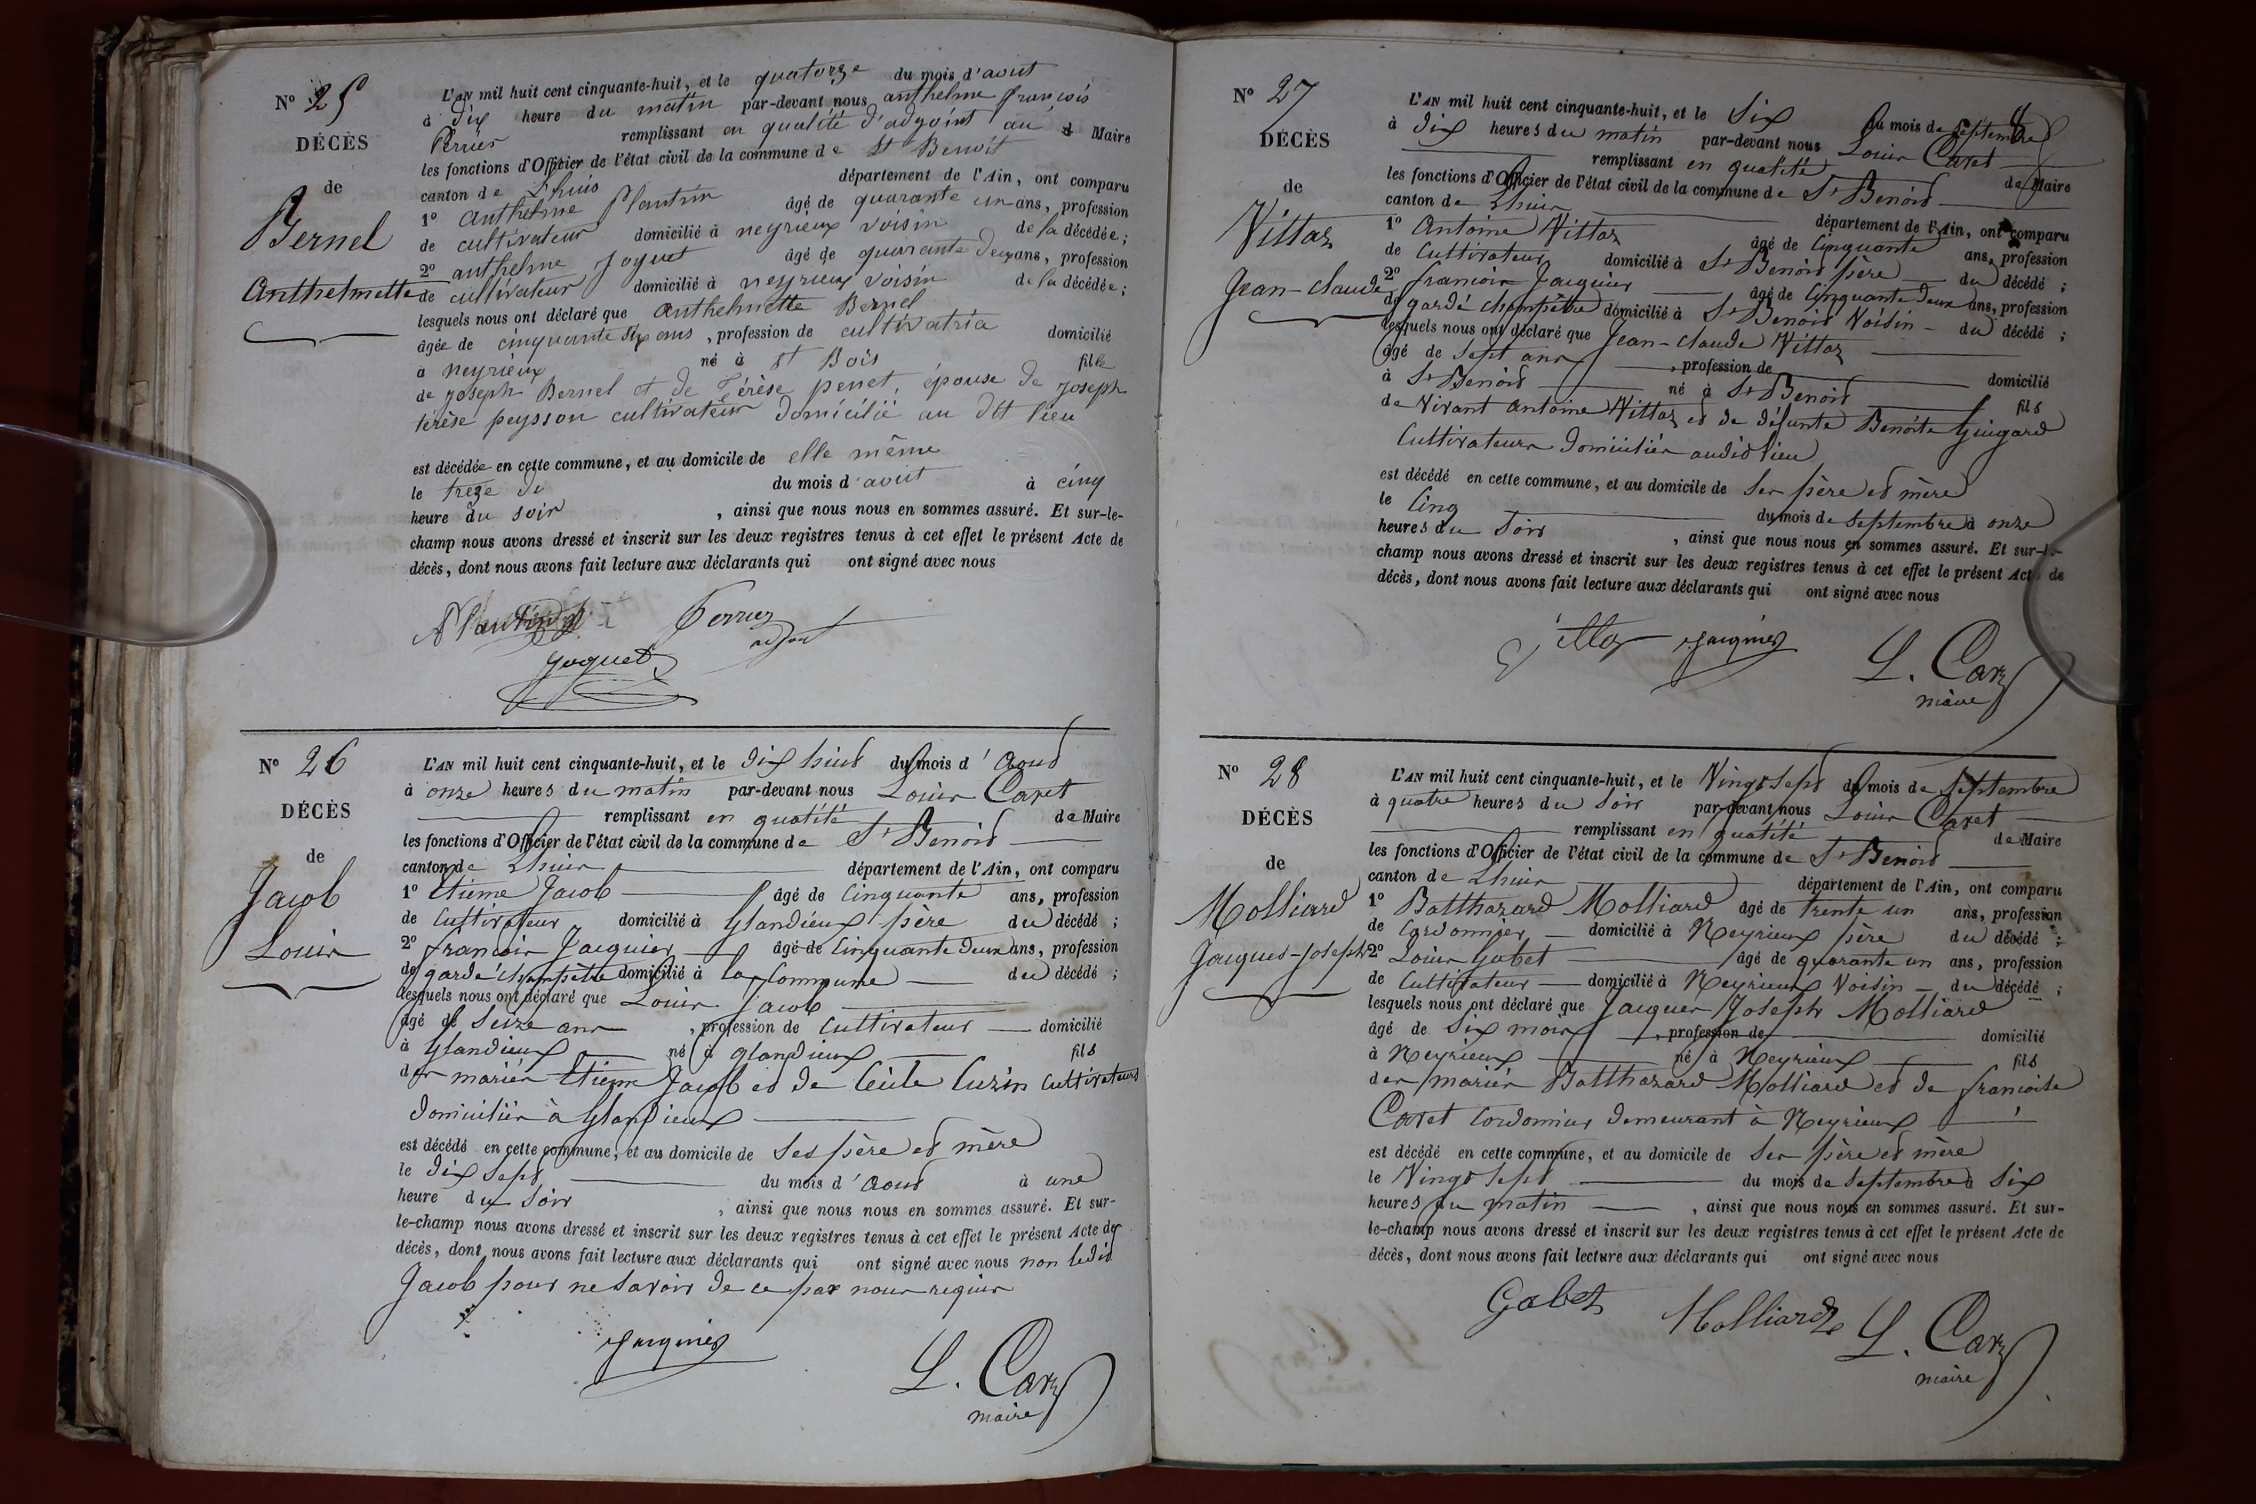 N° 25
DÉCÈS
de
Bernel
Anthelmette
L'AN mil huit cent cinquante-huit, et le quatorze du mois d'aout
à dix heure du matin par-devant nous anthelme françois
Perrier remplissant en qualité d'adjoint au Maire
les fonctions d'Officier de l'état civil de la commune de St Benoît
canton de Lhuis département de l'Ain, ont comparu
1° Anthelme Plantin âgé de quarante un ans, profession
de cultivateur domicilié à neyrieux voisin de la décédée;
2° anthelme Joguet âgé de quarante deux ans, profession
de cultivateur domicilié à neyrieux voisin de la décédée;
lesquels nous ont déclaré que Anthelmette Bernel
âgée de cinquante six ans, profession de cultivatria domicilié
à neyrieux né à St Bois fille
de joseph Bernel et de Térèse penet, épouse de joseph
térèse peysson cultivateur domicilié au dit lieu
est décédée en cette commune, et au domicile de elle même
le treze du du mois d'aout à cinq
heure du soir, ainsi que nous nous en sommes assuré. Et sur-le-
champ nous avons dressé et inscrit sur les deux registres tenus à cet effet le présent Acte de
décès, dont nous avons fait lecture aux déclarants qui ont signé avec nous
Perrier
adjoint
Joguet
N° 26
DÉCÈS
de
Jacob
Louis
L'AN mil huit cent cinquante-huit, et le dix huit du mois d'Aout
à onze heures du matin par-devant nous Louis Caret
remplissant en qualité de Maire
les fonctions d'Officier de l'état civil de la commune de St Benoit
canton de Lhuis département de l'Ain, ont comparu
1° Etienne Jacob âgé de Cinquante ans, profession
de Cultivateur domicilié à Glandieux père du décédé;
2° francois Jacquier âgé de Cinquante deux ans, profession
de garde Champêtre domicilié à la Commune du décédé;
lesquels nous ont déclaré que Louis Jacob
âgé de Seize ans, profession de Cultivateur domicilié
à Glandieux né à glandieux fils
des mariés Etienne Jacob et de Cécile Cuzin Cultivateurs
domiciliés à Glandieux
est décédé en cette commune, et au domicile de Ses père et mère
le dix Sept du mois d'Aout à une
heure du Soir, ainsi que nous nous en sommes assuré. Et sur-
le-champ nous avons dressé et inscrit sur les deux registres tenus à cet effet le présent Acte de
décès, dont nous avons fait lecture aux déclarants qui ont signé avec nous non ledit
Jacob pour ne Savoir de ce par nous requis
Jacquier
L. Caret
maire
N° 27
DÉCÈS
de
Vittoz
Jean-Claude
L'AN mil huit cent cinquante-huit, et le Six du mois de Septembre
à Dix heures du matin par-devant nous Louis Caret
remplissant en qualité de Maire
les fonctions d'Officier de l'état civil de la commune de St Benoit
canton de Lhuis département de l'Ain, ont comparu
1° Antoine Vittoz âgé de Cinquante ans, profession
de Cultivateur domicilié à St Benoit père du décédé;
2° francois Jacquier âgé de Cinquante deux ans, profession
de garde Champêtre domicilié à St Benoit Voisin du décédé;
lesquels nous ont déclaré que Jean-Claude Vittoz
âgé de Sept ans, profession de domicilié
à St Benoit né à St Benoit fils
de Vivant Antoine Vittoz et de défunte Benoite Guigard
Cultivateurs domiciliés audit lieu
est décédé en cette commune, et au domicile de Ses père et mère
le Cinq du mois de Septembre à onze
heures du Soir, ainsi que nous nous en sommes assuré. Et sur-le-
champ nous avons dressé et inscrit sur les deux registres tenus à cet effet le présent Acte de
décès, dont nous avons fait lecture aux déclarants qui ont signé avec nous
Jacquier
L. Caret
maire
N° 28
DÉCÈS
de
Molliard
Jacques-Joseph
L'AN mil huit cent cinquante-huit, et le Vingt Sept du mois de Septembre
à quatre heures du Soir par-devant nous Louis Caret
remplissant en qualité de Maire
les fonctions d'Officier de l'état civil de la commune de St Benoit
canton de Lhuis département de l'Ain, ont comparu
1° Balthazard Molliard âgé de trente un ans, profession
de Cordonnier domicilié à Neyrieux père du décédé;
2° Louis Gabet âgé de quarante un ans, profession
de Cultivateur domicilié à Neyrieux Voisin du décédé;
lesquels nous ont déclaré que Jacques Joseph Molliard
âgé de Six mois, profession de domicilié
à Neyrieux né à Neyrieux fils
des mariés Balthazard Molliard et de francoise
Caret Cordonnier demeurant à Neyrieux
est décédé en cette commune, et au domicile de Ses père et mère
le Vingt Sept du mois de Septembre à Six
heures du matin, ainsi que nous nous en sommes assuré. Et sur-
le-champ nous avons dressé et inscrit sur les deux registres tenus à cet effet le présent Acte de
décès, dont nous avons fait lecture aux déclarants qui ont signé avec nous
Gabet
Molliard
L. Caret
maire